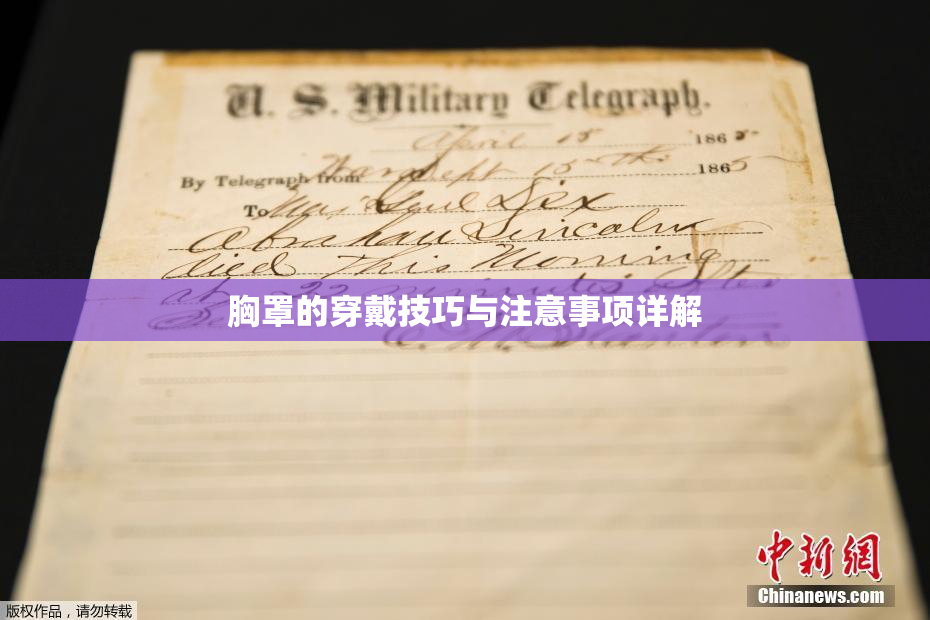 U. S. Military Telegraph.
April 15 1865
By Telegraph from War Dept 15th 1865
To Maj Genl Dix
Abraham Lincoln
died This Morning
at 22 minutes after
胸罩的穿戴技巧与注意事项详解
E. M. Stanton
中新网
Chinanews.com
版权作品，请勿转载